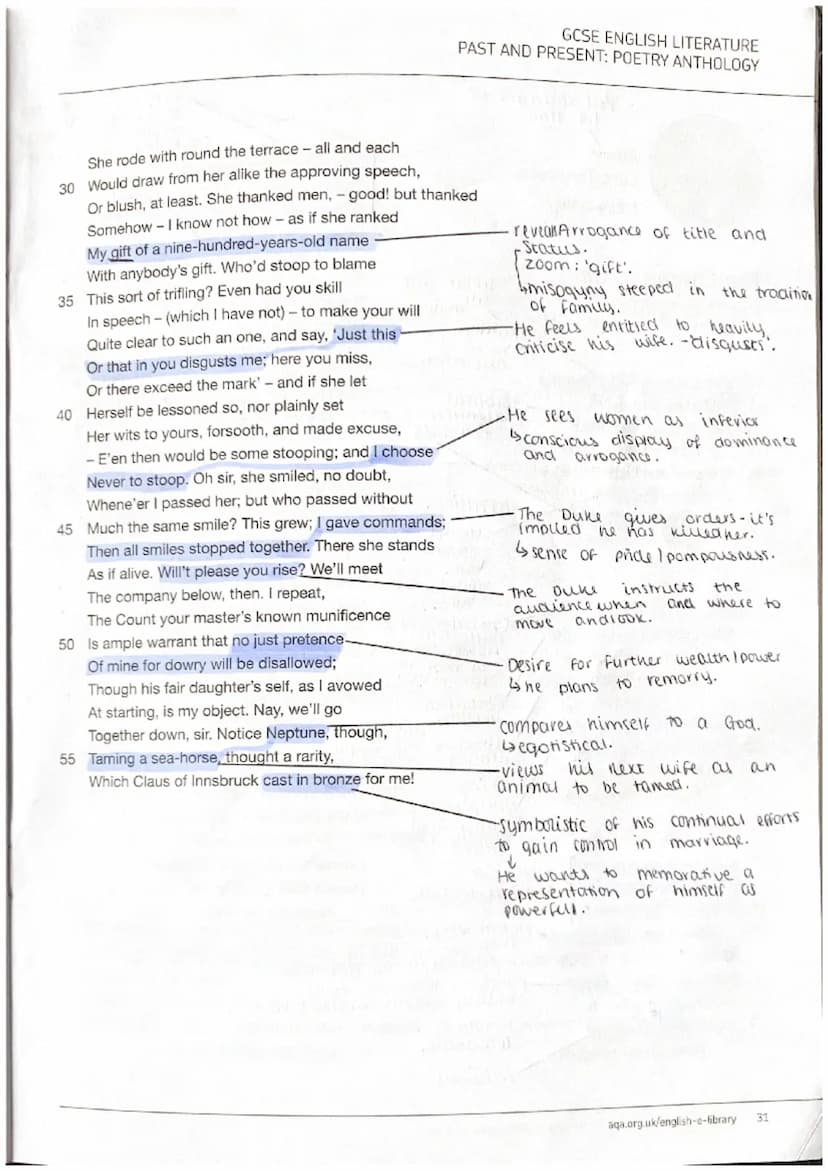 GCSE ENGLISH LITERATURE
PAST AND PRESENT: POETRY ANTHOLOGY
She rode with round the terrace – all and each
30 Would draw from her alike the approving speech,
Or blush, at least. She thanked men, – good! but thanked
Somehow – I know not how – as if she ranked
My gift of a nine-hundred-years-old name
With anybody's gift. Who'd stoop to blame
35 This sort of trifling? Even had you skill
In speech – (which I have not) – to make your will
Quite clear to such an one, and say, 'Just this
Or that in you disgusts me; here you miss,
Or there exceed the mark' – and if she let
40 Herself be lessoned so, nor plainly set
Her wits to yours, forsooth, and made excuse,
– E'en then would be some stooping; and I choose
Never to stoop. Oh sir, she smiled, no doubt,
Whene'er I passed her; but who passed without
45 Much the same smile? This grew; I gave commands;
Then all smiles stopped together. There she stands
As if alive. Will't please you rise? We'll meet
The company below, then. I repeat,
The Count your master's known munificence
50 Is ample warrant that no just pretence
Of mine for dowry will be disallowed;
Though his fair daughter's self, as I avowed
At starting, is my object. Nay, we'll go
Together down, sir. Notice Neptune, though,
55 Taming a sea-horse, thought a rarity,
Which Claus of Innsbruck cast in bronze for me!
Arrogance of title and
status.
zoom: 'gift'.
↳misogyny steeped in the tradition
of family.
He feels entitled to heavily
criticise his wife. -'disgusts'.
He sees women as inferior
↳conscious display of dominance
and arrogance.
The Duke gives orders - it's
implied he has killed her.
↳sense of pride/pompousness.
The Duke instructs the
audience when and where to
move and look.
Desire for further wealth/power
↳he plans to remarry.
compares himself to a God.
↳egotistical.
views his next wife as an
animal to be tamed.
symbolistic of his continual efforts
to gain control in marriage.
↓
He wants to memorative a
representation of himself as
powerful.
aqa.org.uk/english-e-library 31